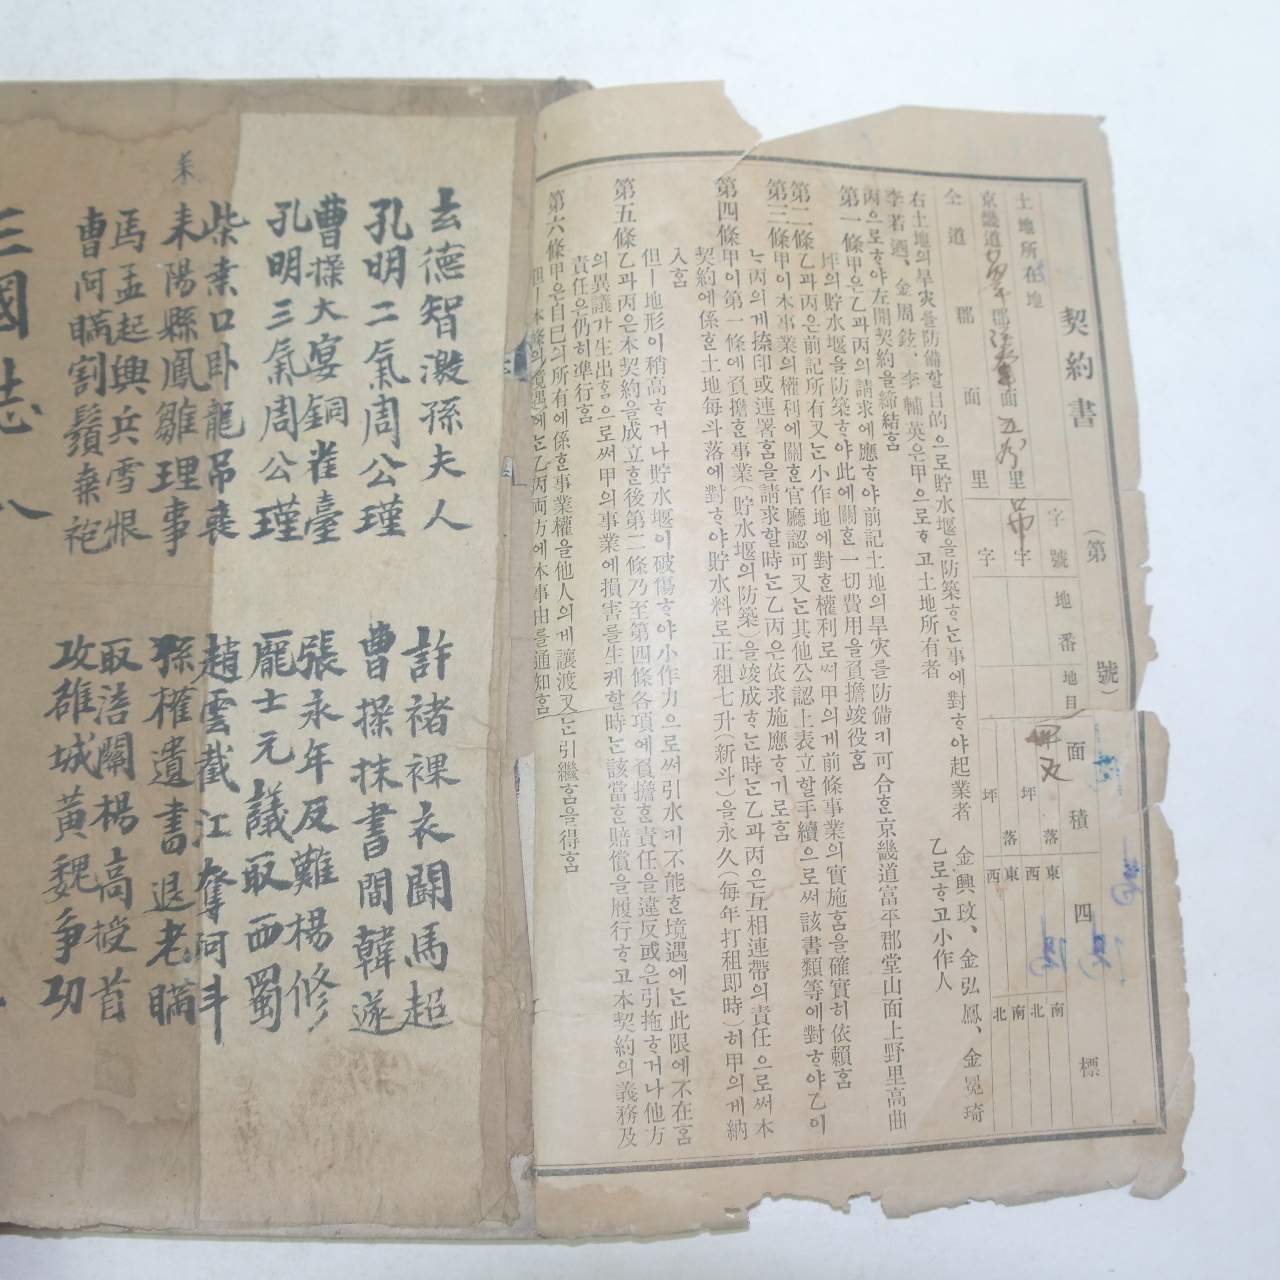 契約書
(第 號)
土地所在地 字號 地番 地目 面積 四標
京畿道 郡 面 里 字 坪 落 東 西 南 北
仝道 郡 面 里 字 坪 落 東 西 南 北
右土地의旱灾를防備할目的으로貯水堰을防築ᄒᆞ는事에對ᄒᆞ야起業者 金興玟、金弘鳳、金冕琦
李若迺、金周鉉、李輔英은甲으로ᄒᆞ고土地所有者 乙로ᄒᆞ고小作人
丙으로ᄒᆞ야左開契約을締結홈
第一條甲은乙과丙의請求에應ᄒᆞ야前記土地의旱灾를防備키可合ᄒᆞᆫ京畿道富平郡堂山面上野里高曲
坪의貯水堰을防築ᄒᆞ야此에關ᄒᆞᆫ一切費用을負擔竣役홈
第二條乙과丙은前記所有又는小作地에對ᄒᆞᆫ權利로써甲의게前條事業의實施홈을確實히依賴홈
第三條甲이本事業의權利에關ᄒᆞᆫ官廳認可又는其他公認上表立할手續으로써該書類等에對ᄒᆞ야乙이
는丙의게捺印或連署홈을請求할時는乙丙은依求施應ᄒᆞ기로홈
第四條甲이第一條에負擔ᄒᆞᆫ事業(貯水堰의防築)을竣成ᄒᆞ는時는乙과丙은互相連帶의責任으로써本
契約에係ᄒᆞᆫ土地每斗落에對ᄒᆞ야貯水料로正租七升(新斗)을永久(每年打租即時)히甲의게納
入홈
但ㅣ地形이稍高ᄒᆞ거나貯水堰이破傷ᄒᆞ야小作力으로써引水키不能ᄒᆞᆫ境遇에는此限에不在홈
第五條乙과丙은本契約을成立ᄒᆞᆫ後第二條乃至第四條各項에負擔ᄒᆞᆫ責任을違反或은引拖ᄒᆞ거나他方
의異議가生出홈으로써甲의事業에損害를生케할時는該當ᄒᆞᆫ賠償을履行ᄒᆞ고本契約의義務及
責任은仍히準行홈
第六條甲은自己의所有에係ᄒᆞᆫ事業權을他人의게讓渡又는引繼홈을得홈
但ㅣ本條의境遇에는乙丙両方에本事由를通知홈
玄德智激孫夫人 許褚裸衣鬪馬超
孔明二氣周公瑾 曹操抹書間韓遂
曹操大宴銅雀臺 張永年反難楊修
孔明三氣周公瑾 龐士元議取西蜀
柴桑口卧龍吊喪 趙雲截江奪阿斗
耒陽縣鳳雛理事 孫權遺書退老瞞
馬孟起興兵雪恨 取涪關楊高授首
曹阿瞞割鬚棄袍 攻雒城黃魏爭功
三國志 八